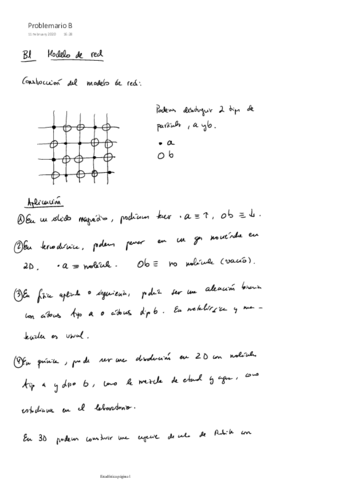 Problemario B
B1 Modelo de red
Construcción del modelo de red:
Podemos distinguir 2 tipos de
partículas, a y b.
• a
O b
Aplicación
① En un sólido magnético, podríamos tener • a ≡ ↑, O b ≡ ↓.
② En termodinámica, podemos pensar en un gas moviéndose en
2D, • a ≡ molécula. O b ≡ no molécula (vacío).
③ En física aplicada o ingeniería, podría ser una aleación binaria
con átomos tipo a o átomos tipo b. En metalurgia y
materiales es usual.
④ En química, puede ser una disolución en 2D con moléculas
tipo a y tipo b, como la mezcla de etanol y agua, como
estudiamos en el laboratorio.
En 3D podemos construir una especie de cubo de Rubik con